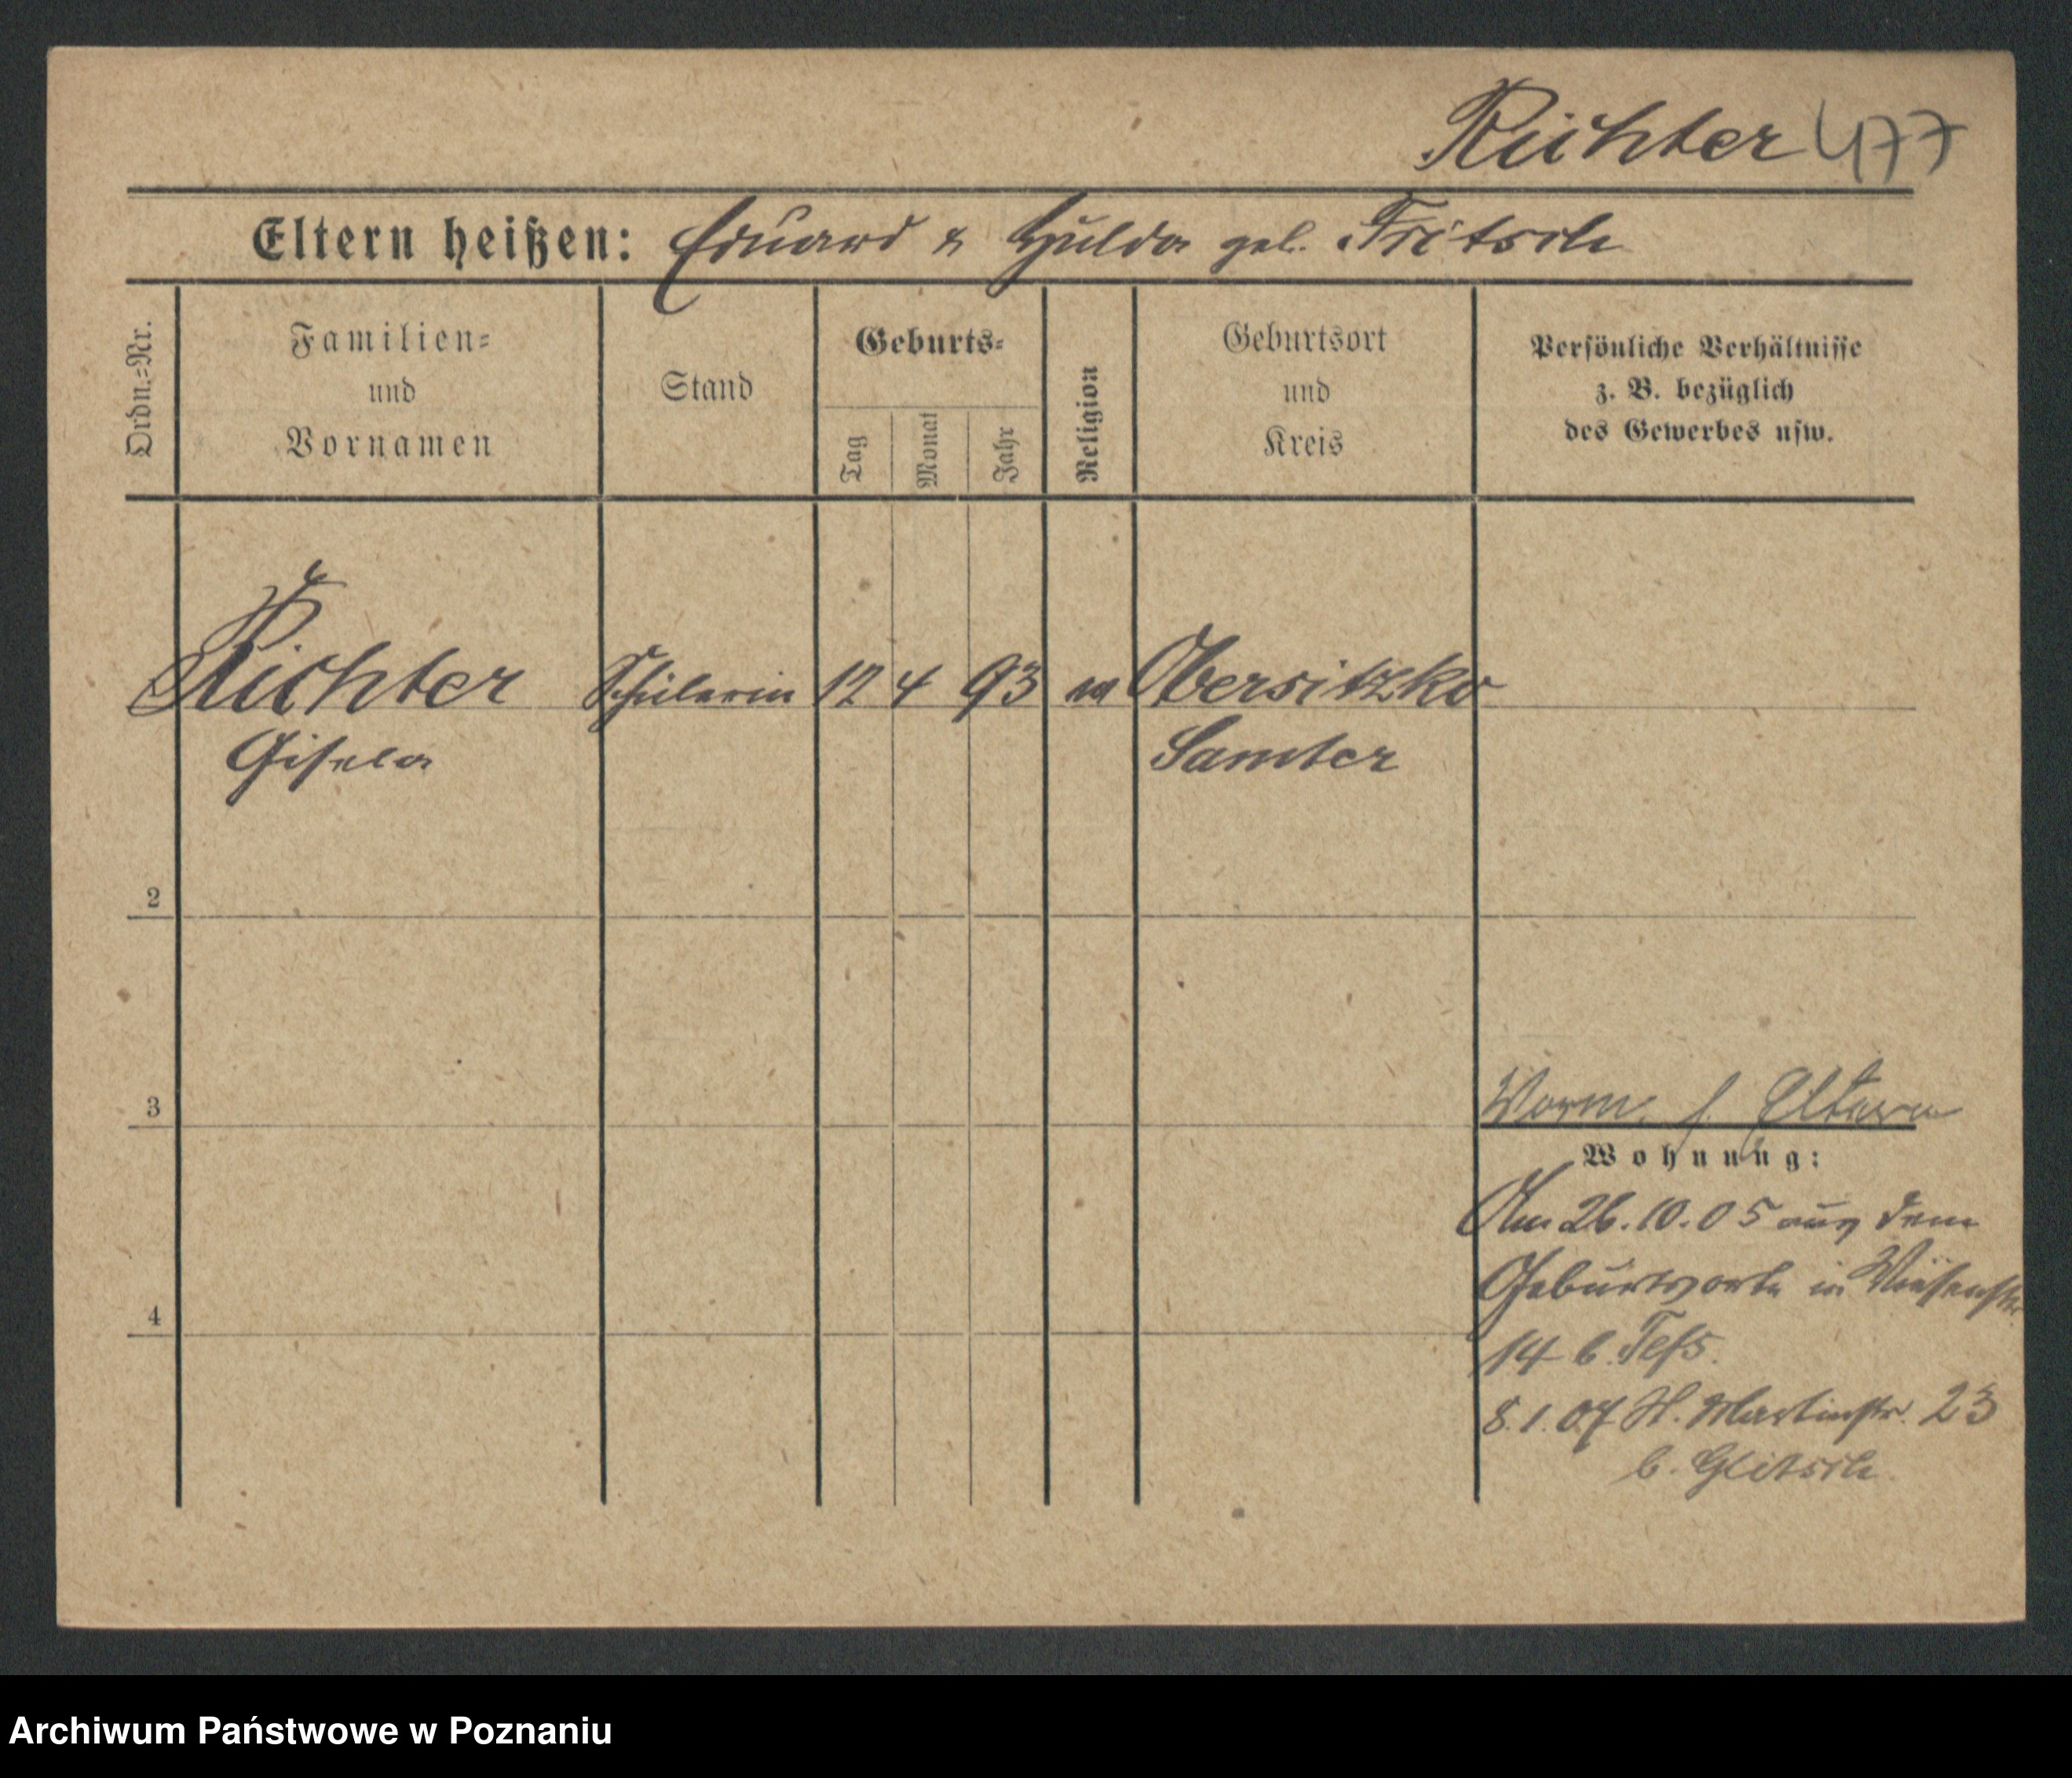 Richter 477
Eltern heißen: Eduard & Hulda geb. Fritsch
Ordn.=Nr.
Familien=
und
Vornamen
Stand
Geburts=
Tag
Monat
Jahr
Religion
Geburtsort
und
Kreis
Persönliche Verhältnisse
z. B. bezüglich
des Gewerbes usw.
Richter Schülerin 12 4 93 Obersitzko
Gisela Samter
2
3
4
Eltern
Wohnung:
Am 26.10.05 aus dem
Geburtsorte in Wiesenstr.
14 b.
8.1.07 St. Martinstr. 23
b. Glitsch
Archiwum Państwowe w Poznaniu